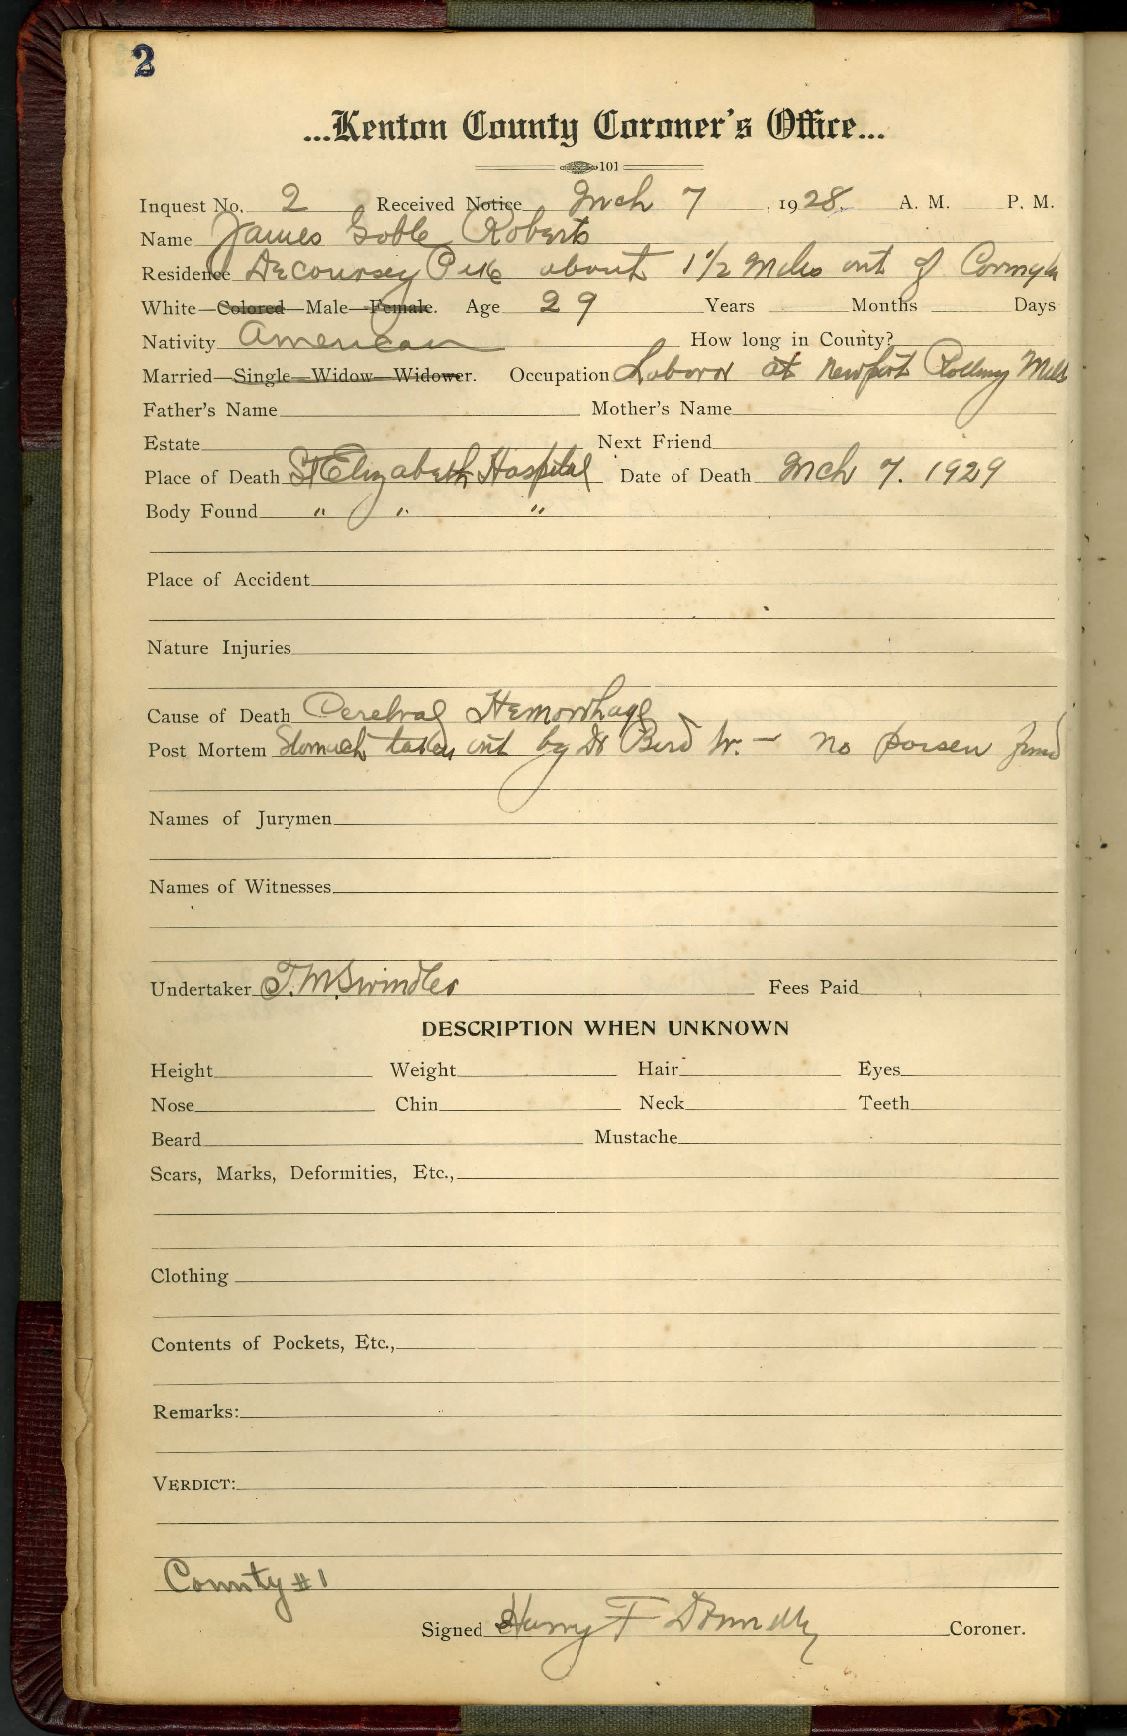 2
...Kenton County Coroner's Office...
101
Inquest No. 2 Received Notice Mch 7, 1928. A. M. P. M.
Name James Goble Roberts
Residence Decoursey Pike about 1 1/2 Miles out of
White—Colored—Male—Female. Age 29 Years Months Days
Nativity American How long in County?
Married—Single—Widow—Widower. Occupation Laborer at Newport Rolling Mills
Father's Name Mother's Name
Estate Next Friend
Place of Death St Elizabeth Hospital Date of Death Mch 7. 1929
Body Found " " "
Place of Accident
Nature Injuries
Cause of Death Cerebral Hemorrhage
Post Mortem Stomach taken out by Dr — no poisen found
Names of Jurymen
Names of Witnesses
Undertaker T.M. Swindler Fees Paid
DESCRIPTION WHEN UNKNOWN
Height Weight Hair Eyes
Nose Chin Neck Teeth
Beard Mustache
Scars, Marks, Deformities, Etc.,
Clothing
Contents of Pockets, Etc.,
Remarks:
VERDICT:
County #1
Signed Harry F Donnelly Coroner.